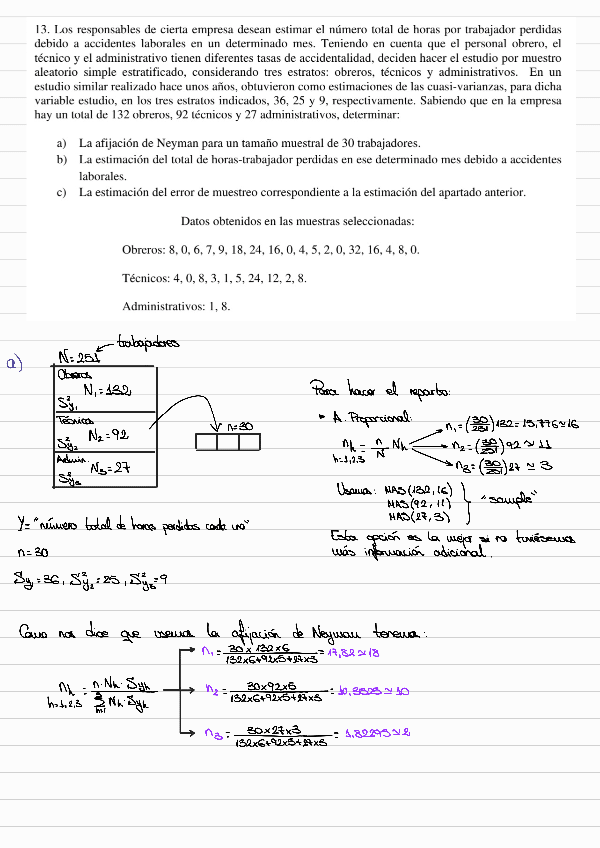 13. Los responsables de cierta empresa desean estimar el número total de horas por trabajador perdidas
debido a accidentes laborales en un determinado mes. Teniendo en cuenta que el personal obrero, el
técnico y el administrativo tienen diferentes tasas de accidentalidad, deciden hacer el estudio por muestro
aleatorio simple estratificado, considerando tres estratos: obreros, técnicos y administrativos. En un
estudio similar realizado hace unos años, obtuvieron como estimaciones de las cuasi-varianzas, para dicha
variable estudio, en los tres estratos indicados, 36, 25 y 9, respectivamente. Sabiendo que en la empresa
hay un total de 132 obreros, 92 técnicos y 27 administrativos, determinar:
a) La afijación de Neyman para un tamaño muestral de 30 trabajadores.
b) La estimación del total de horas-trabajador perdidas en ese determinado mes debido a accidentes
laborales.
c) La estimación del error de muestreo correspondiente a la estimación del apartado anterior.
Datos obtenidos en las muestras seleccionadas:
Obreros: 8, 0, 6, 7, 9, 18, 24, 16, 0, 4, 5, 2, 0, 32, 16, 4, 8, 0.
Técnicos: 4, 0, 8, 3, 1, 5, 24, 12, 2, 8.
Administrativos: 1, 8.
a)
trabajadores
N=251
Obreros
N₁=132
S²y₁
Técnicos
N₂=92
S²y₂
Admin.
N₃=27
S²y₃
n=30
Para hacer el reparto:
A. Proporcional:
nₕ = n/N Nₕ
h=1,2,3
n₁=(30/251)132=15,776≃16
n₂=(30/251)92≃11
n₃=(30/251)27≃3
Usamos: MAS(132,16)
MAS(92,11)
MAS(27,3)
"sample"
Esta opción es la mejor si no tuviésemos
más información adicional.
Y="número total de horas perdidas cada uno"
n=30
S²y₁=36, S²y₂=25, S²y₃=9
Como nos dice que usemos la afijación de Neyman tenemos:
nₕ = n·Nₕ·Syₕ / Σ³ₕ₌₁ Nₕ·Syₕ
h=1,2,3
n₁ = 30×132×6 / 132×6+92×5+27×3 = 17,82≃18
n₂ = 30×92×5 / 132×6+92×5+27×3 = 10,3523≃10
n₃ = 30×27×3 / 132×6+92×5+27×3 = 1,82295≃2